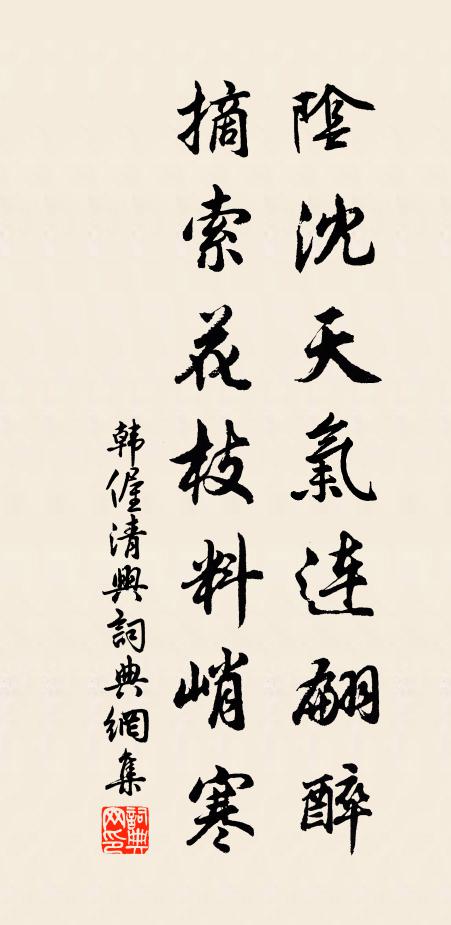 陰沈天氣連翩醉
摘索花枝料峭寒
韩偓清興詞典網集
詞典网印